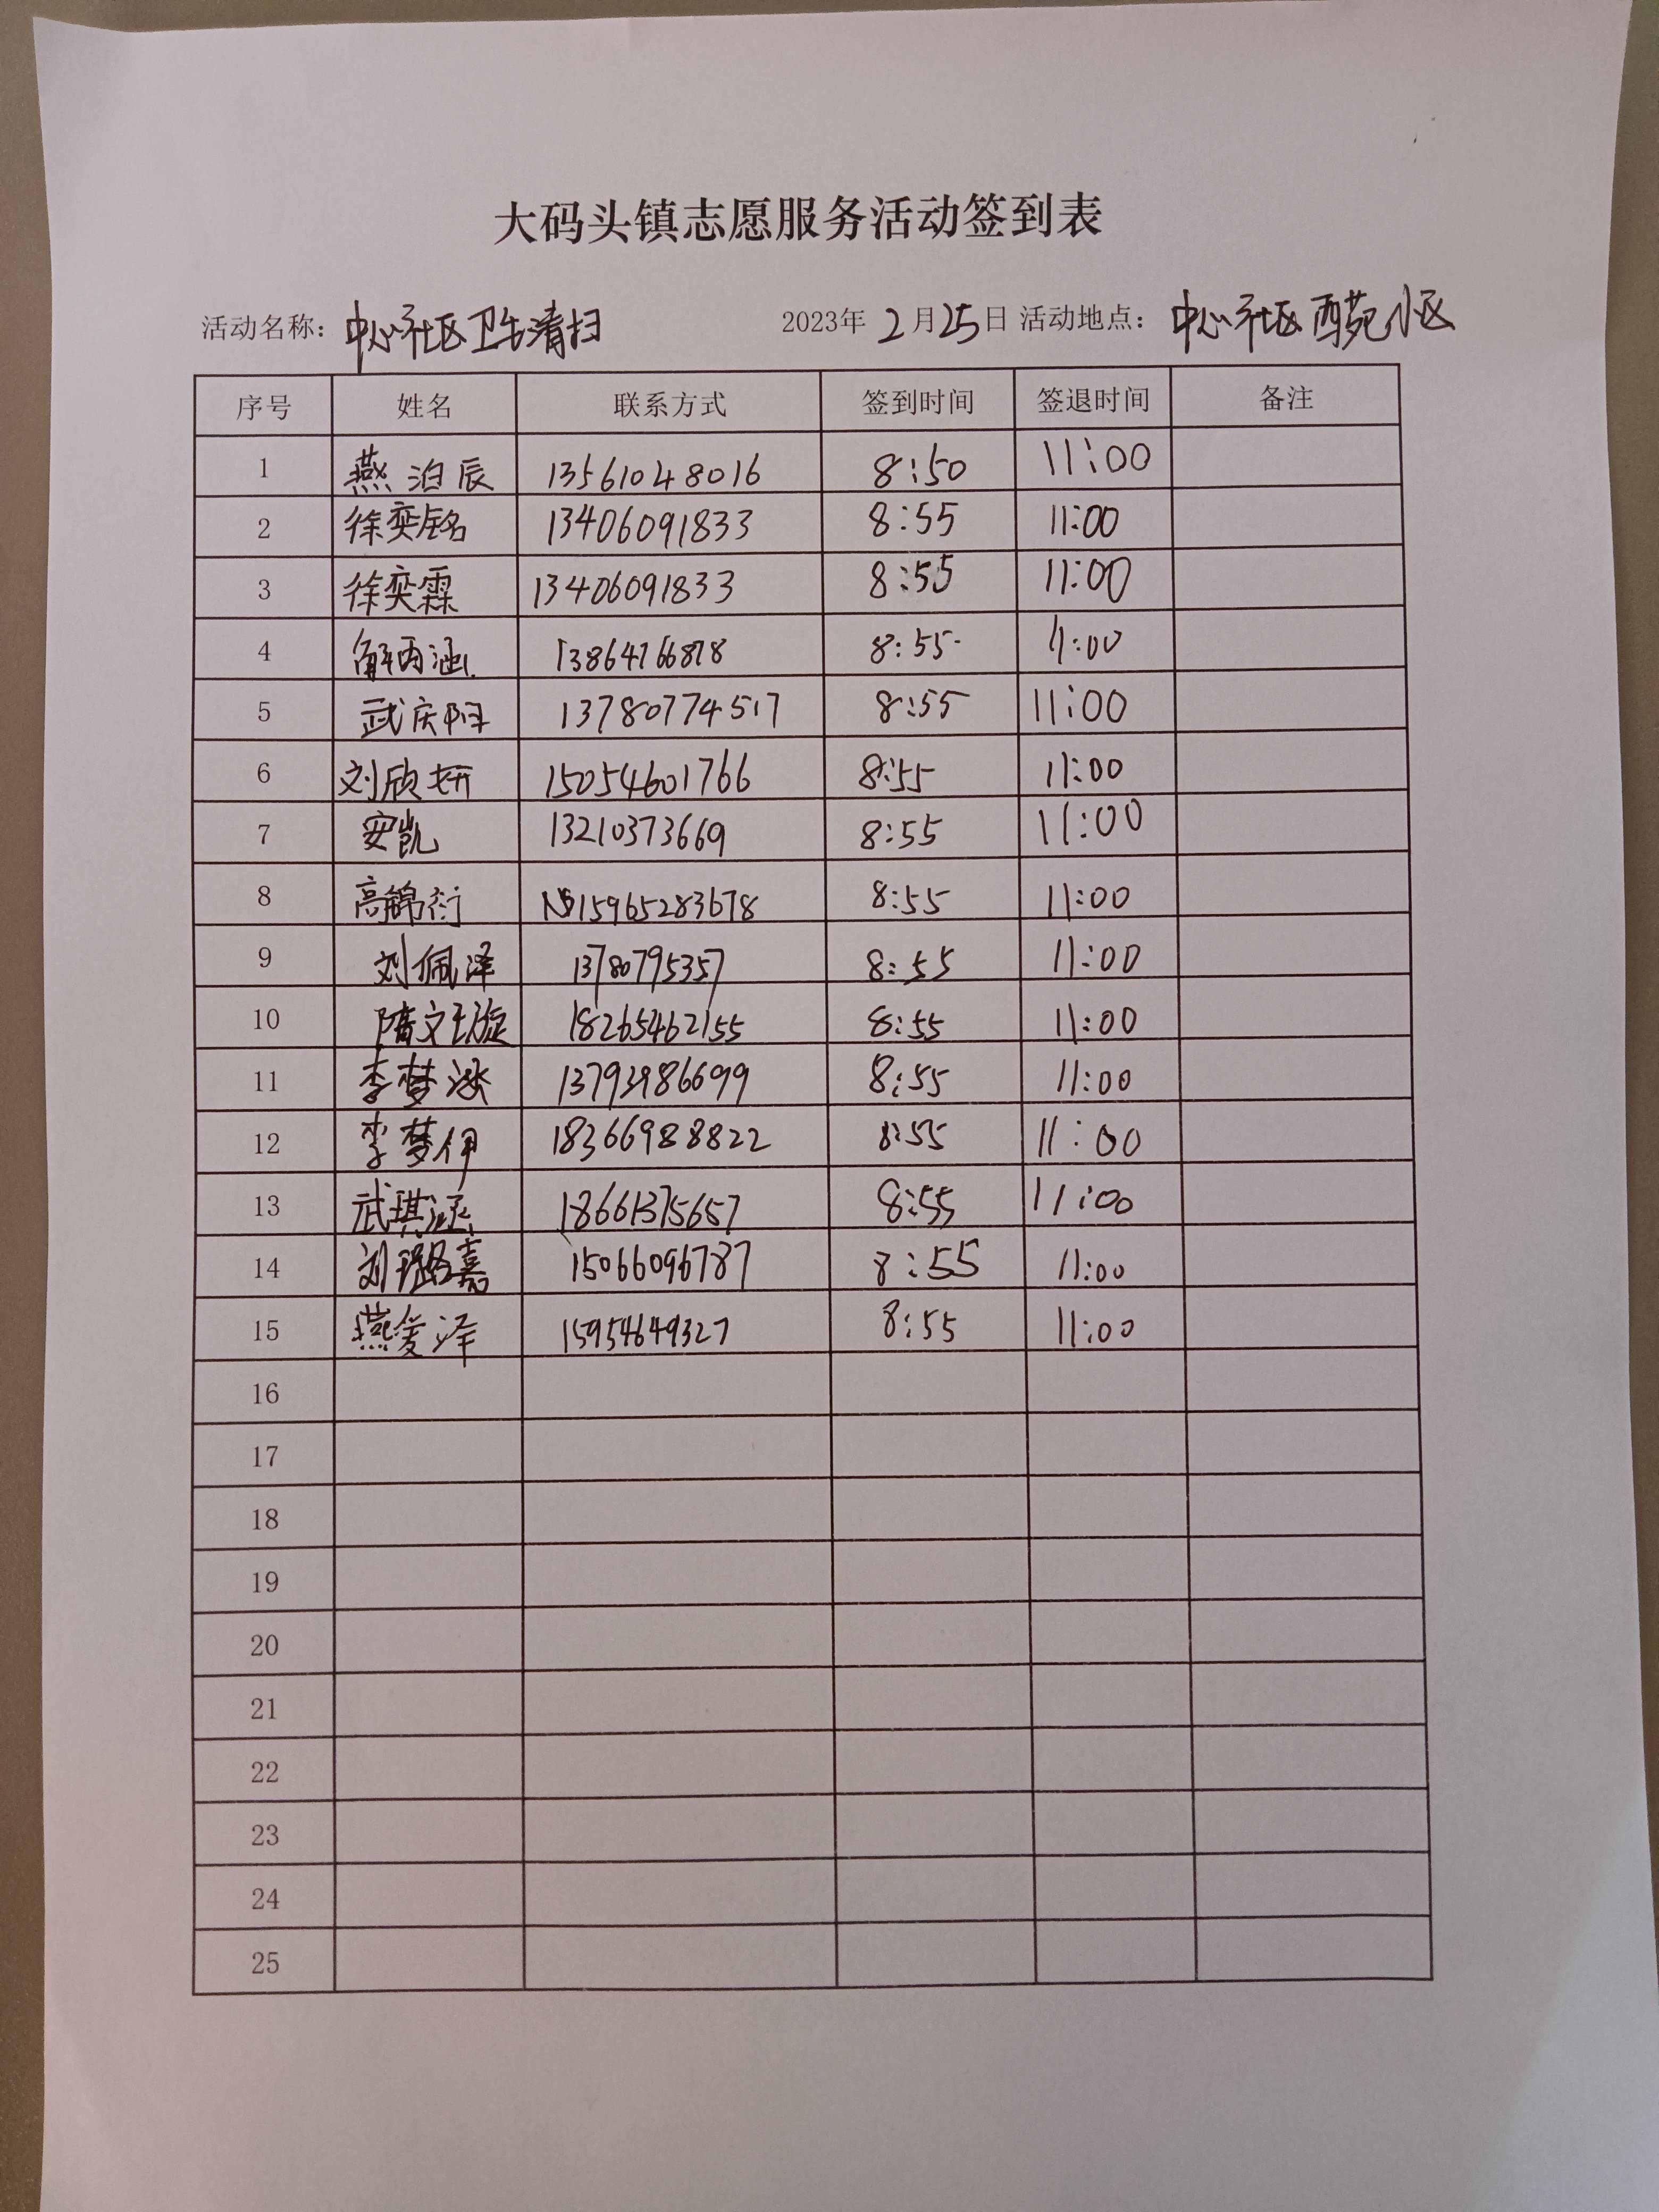 大码头镇志愿服务活动签到表
活动名称：中心社区卫生清扫 2023年2月25日 活动地点：中心社区西苑小区
序号 姓名 联系方式 签到时间 签退时间 备注
1 燕泊辰 13561048016 8:50 11:00
2 徐奕铭 13406091833 8:55 11:00
3 徐奕霖 13406091833 8:55 11:00
4 解丙涵 13864766878 8:55 11:00
5 武庆阳 13780774517 8:55 11:00
6 刘欣妍 15054601766 8:55 11:00
7 安凯 13210373669 8:55 11:00
8 高锦衍 15965283678 8:55 11:00
9 刘佩泽 13780795357 8:55 11:00
10 隋文璇 18265462155 8:55 11:00
11 李梦 13793986699 8:55 11:00
12 李梦伊 18366988822 8:55 11:00
13 武琪涵 18661375657 8:55 11:00
14 刘璐嘉 15066096787 8:55 11:00
15 燕爱泽 15954649327 8:55 11:00
16
17
18
19
20
21
22
23
24
25